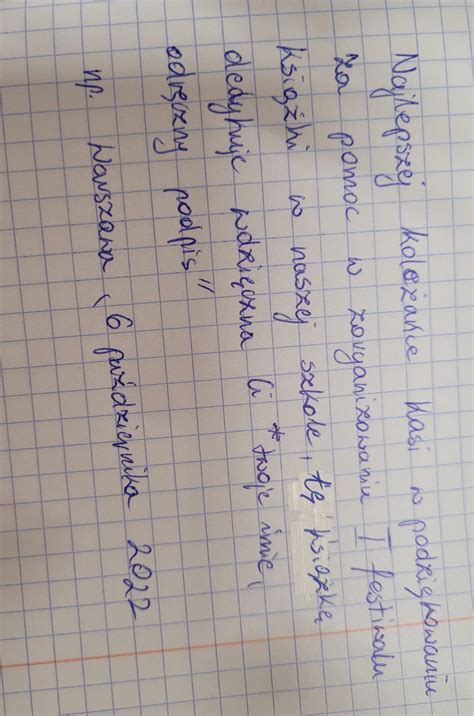 Najlepszej koleżance Kasi w podziękowaniu
za pomoc w zorganizowaniu I festiwalu
książki w naszej szkole, tę książkę
dedykuje wdzięczna Ci *twoje imię,
odręczny podpis"
np. Warszawa, 6 października 2022